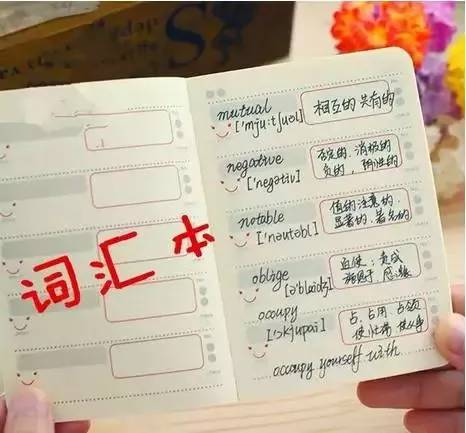 词汇本
mutual
['mju:tʃuəl]
相互的 共同的
negative
['negətiv]
否定的, 消极的
负的, 阴性的
notable
['nəutəbl]
值的注意的
显著的, 著名的
oblige
[ə'blaidʒ]
迫使; 责成
occupy
['ɔkjupai]
占, 占用, 占领
使忙碌 使从事
occupy yourself with